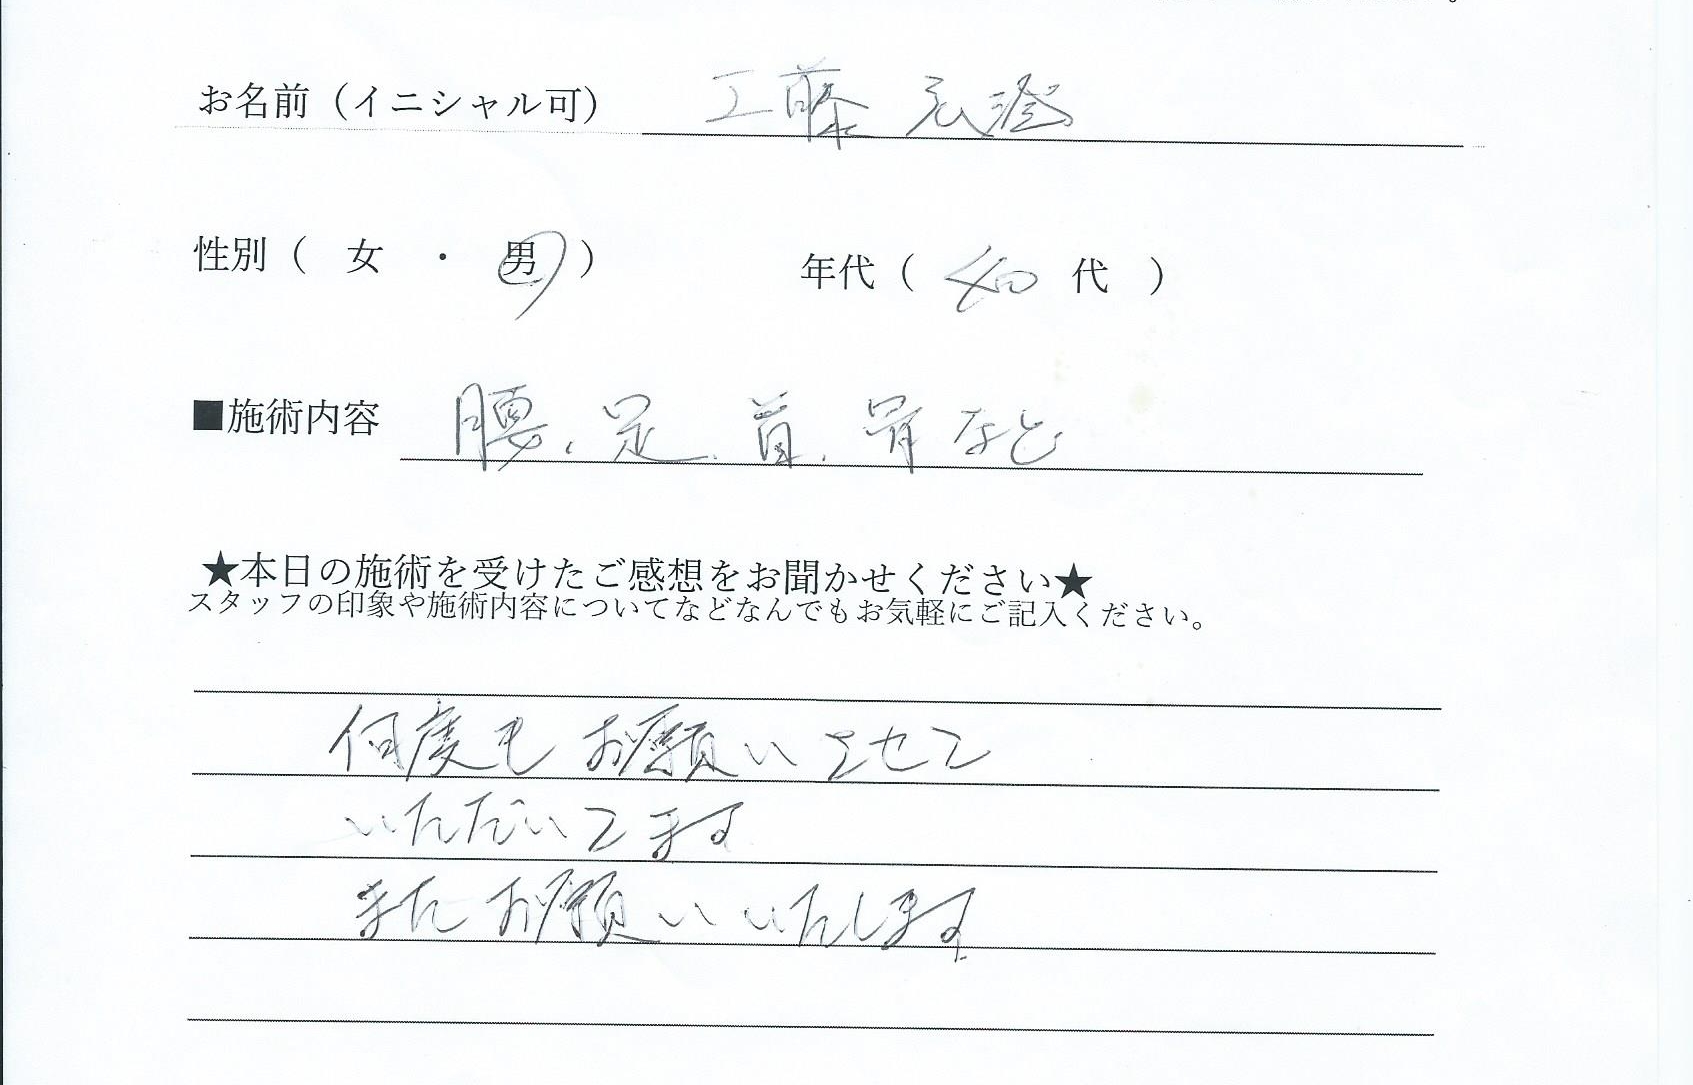 お名前（イニシャル可） 工藤
性別（ 女 ・ 男 ） 年代（ 40 代 ）
■施術内容 腰、足、首、肩など
★本日の施術を受けたご感想をお聞かせください★
スタッフの印象や施術内容についてなどなんでもお気軽にご記入ください。
何度もお願いさせて
いただいてます
またお願いいたします